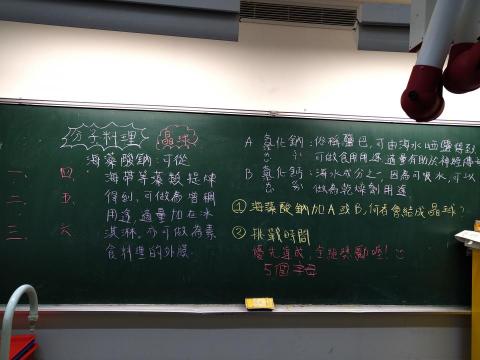 分子料理 晶球
海藻酸鈉:可從
一、 四、 海帶等藻類提煉
二、 五、 得到,可做為增稠
用途,適量加在冰
三、 六、 淇淋,亦可做為素
食料理的外膜
A 氯化鈉:俗稱鹽巴,可由海水晒鹽得到
可做食用用途,適量有助於神經傳
B 氯化鈣:海水成分之一,因為可吸水,可以
做為乾燥劑用途
① 海藻酸鈉加A或B,何者會結成晶球?
② 挑戰時間
優先達成,全班獎勵喔!
5個字母